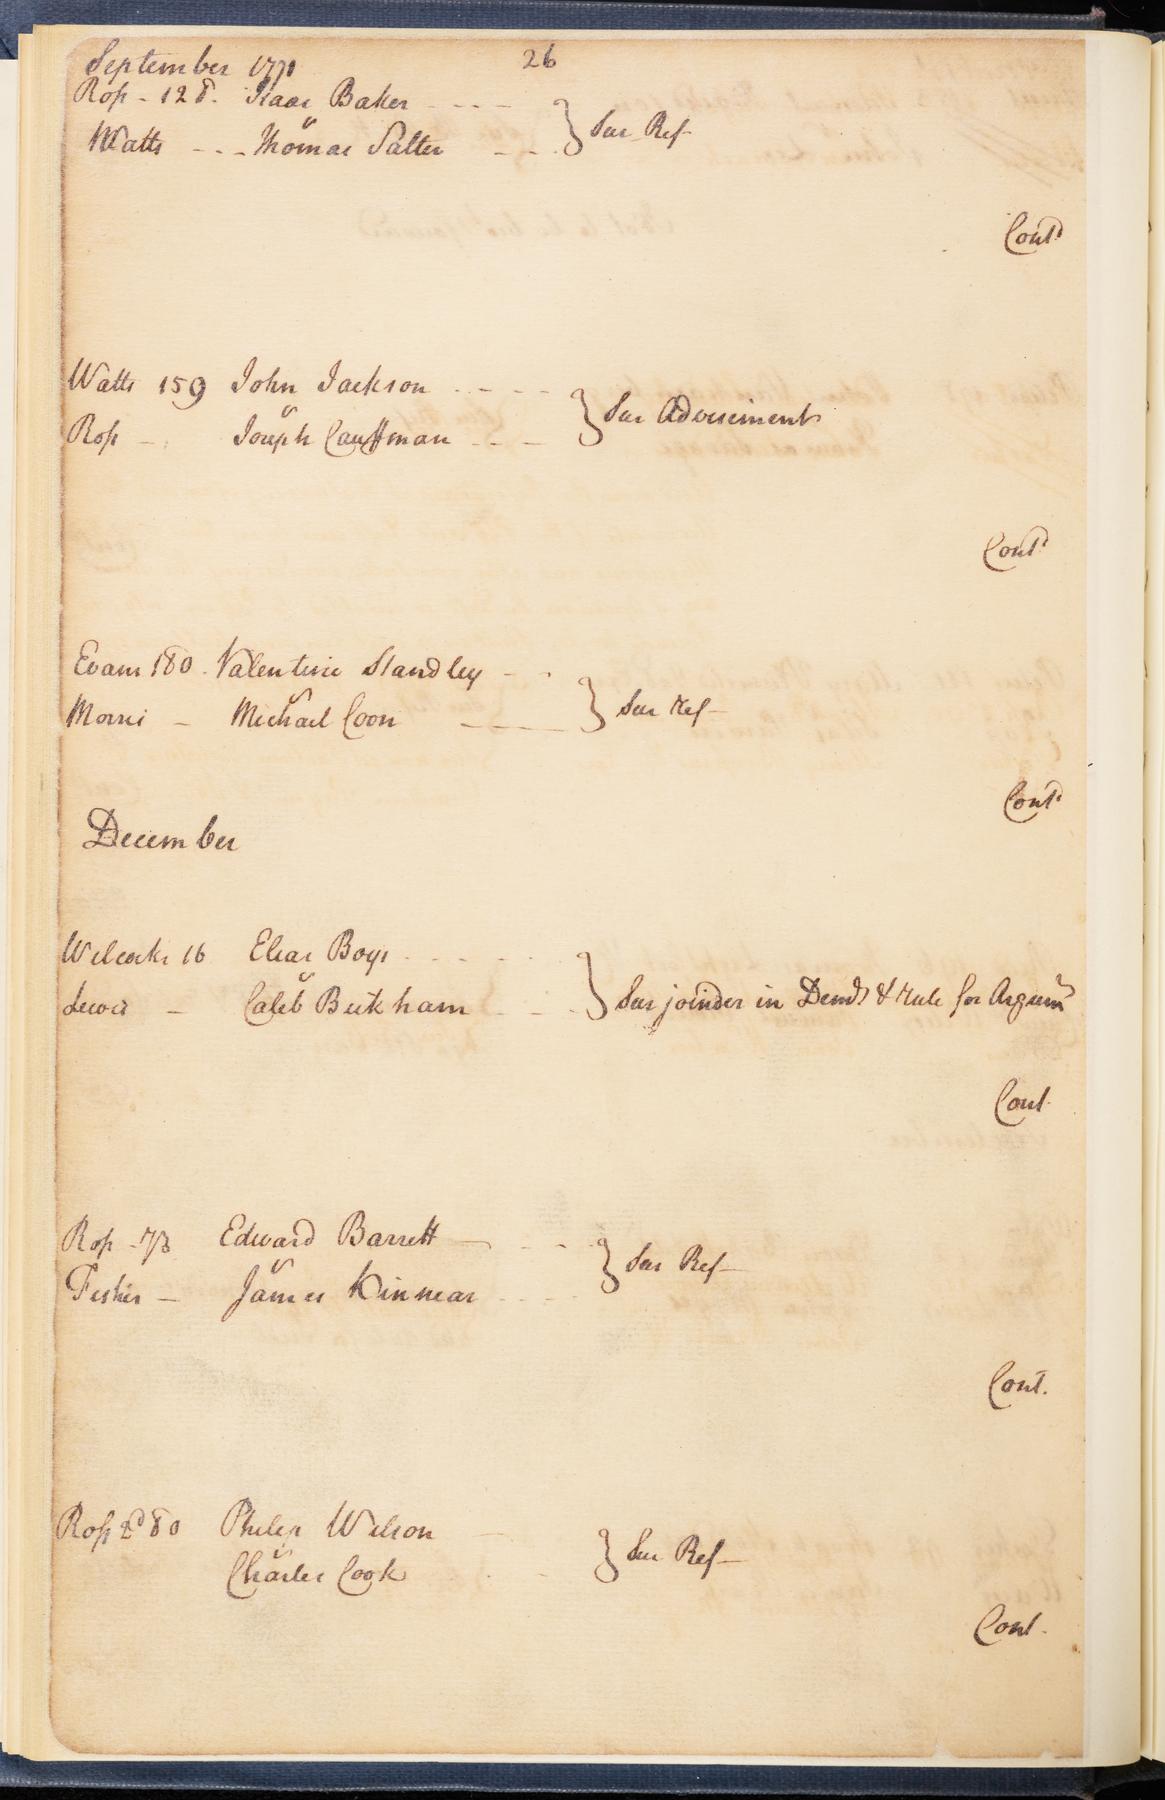 September 1771
26
Ross - 128. Isaac Baker - - - -
v
Watts - - - Thomas Salter - - -
} Sur Ref
Contd
Watts 159 John Jackson - - - -
v
Ross - Joseph Cauffman - - -
} Sur Advisement
Contd
Evans 180 . Valentine Standley - -
v
Morris - Michael Coon
} Sur Ref
Contd
December
Wilcocks 16 Elias Boys - - - -
v
Lewis - Caleb Bickham - - -
} Sur joinder in Demr & Rule for Argumt
Cont
Ross - 73 Edward Barrett - - -
v
Fisher - James Kinnear - - - -
} Sur Ref
Cont.
Ross 2d 80 Philip Wilson -
v
Charles Cook - -
} Sur Ref
Cont.